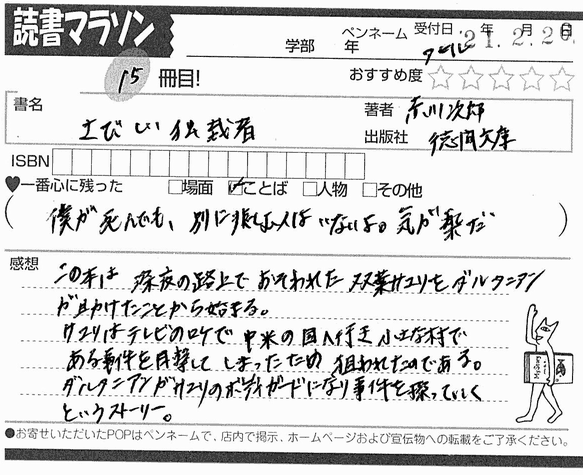 読書マラソン
学部 年 ペンネーム クール 受付日 '21年2月26日
15冊目!
おすすめ度☆☆☆☆☆
書名 さびしい独裁者
著者 赤川次郎
出版社 徳間文庫
ISBN
♥一番心に残った □場面 ☑ことば □人物 □その他
(僕が死んでも、別に悲しむ人はいないよ。気が楽だ)
感想
この本は深夜の路上でおそわれた双葉サユリをダルタニアン
が助けたことから始まる。
サユリはテレビのロケで中米の国へ行き小さな村で
ある事件を目撃してしまったため狙われたのである。
ダルタニアンがサユリのボディガードになり事件を探っていく
というストーリー。
●お寄せいただいたPOPはペンネームで、店内で掲示、ホームページおよび宣伝物への転載をご了承ください。